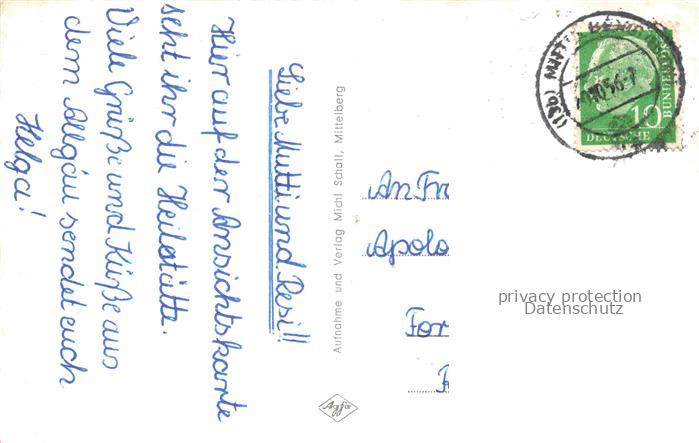 Liebe Mutti und Resi!!
Hier auf der Ansichtskarte
seht ihr die Heilstätte.
Viele Grüße und Küße aus
dem Allgäu sendet euch
Helga!
Aufnahme und Verlag Michl Schall, Mittelberg
Agfa
An Fr
Apolo
For
10
DEUTSCHE
BUNDESPOST
(13b)
10.56-7
privacy protection
Datenschutz